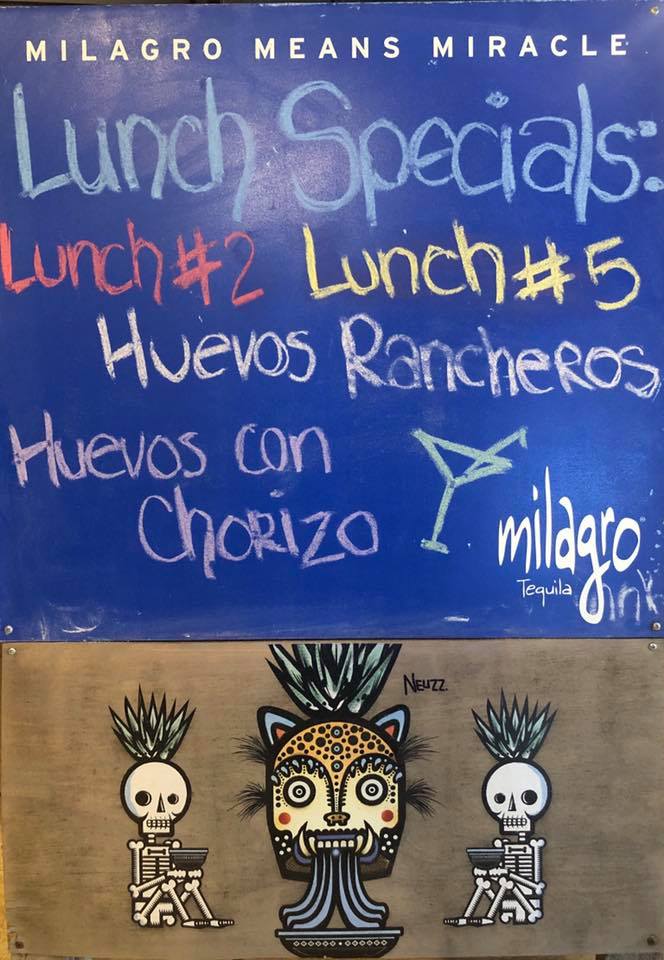 MILAGRO MEANS MIRACLE
Lunch Specials:
Lunch #2 Lunch #5
Huevos Rancheros
Huevos con
Chorizo
milagro
Tequila
NEUZZ.